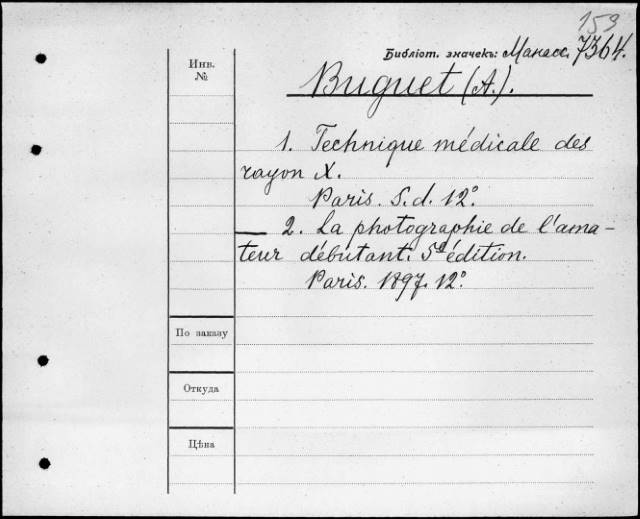 153
Библіот. значекъ: Манасс. 7364.
Инв.
№
Buguet (A.).
1. Technique médicale des
rayon X.
Paris. S. d. 12°
— 2. La photographie de l'ama-
teur débutant. 5e édition.
Paris. 1897. 12°
По заказу
Откуда
Цѣна